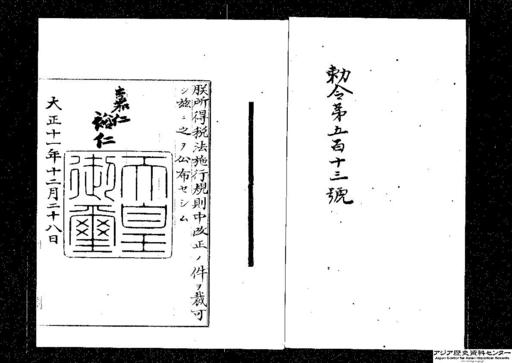 勅令第五百十三號
朕所得税法施行規則中改正ノ件ヲ裁可
シ茲ニ之ヲ公布セシム
嘉仁
裕仁
天皇
御璽
大正十一年十二月二十八日
アジア歴史資料センター
Japan Center for Asian Historical Records